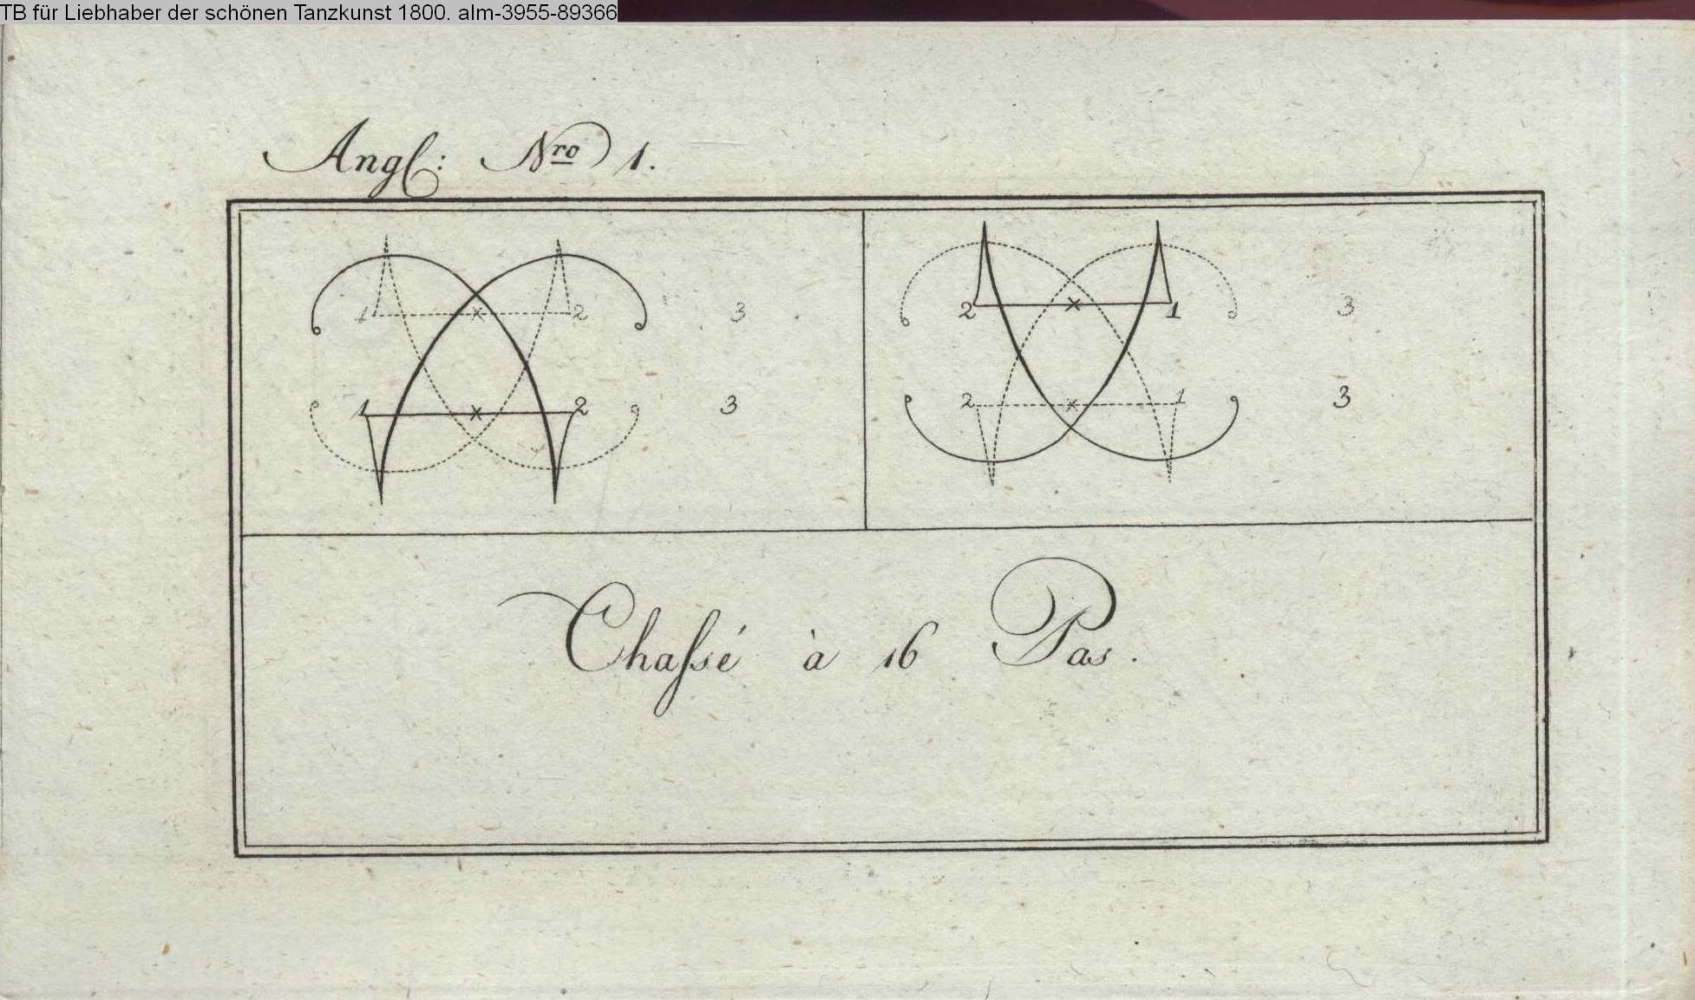 TB für Liebhaber der schönen Tanzkunst 1800. alm-3955-89366
Angl: Nro 1.
1 × 2 3
1 × 2 3
2 × 1 3
2 × 1 3
Chaſsé à 16 Pas.